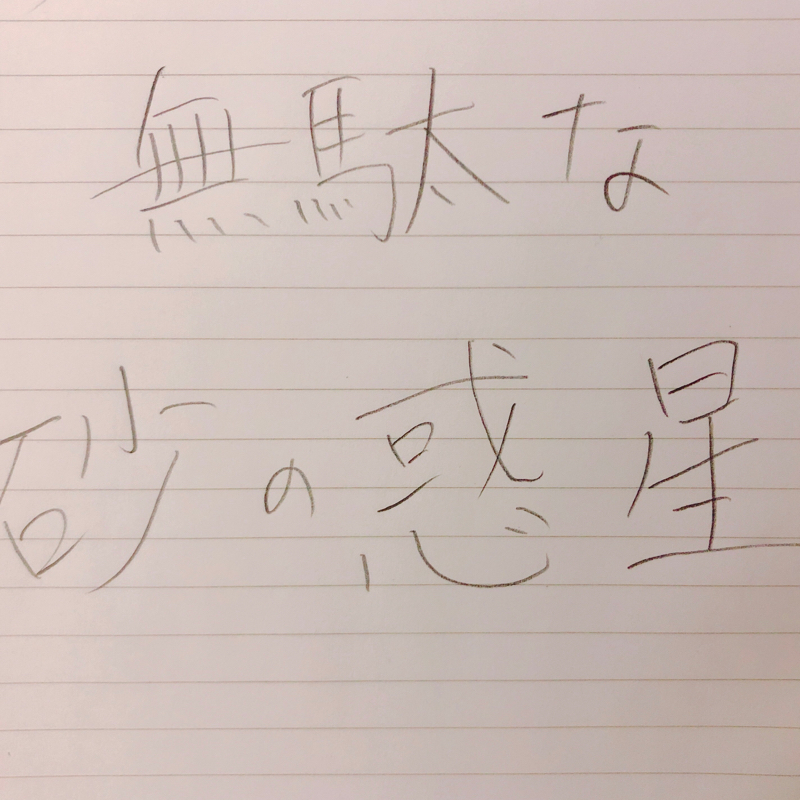 無駄な
砂の惑星